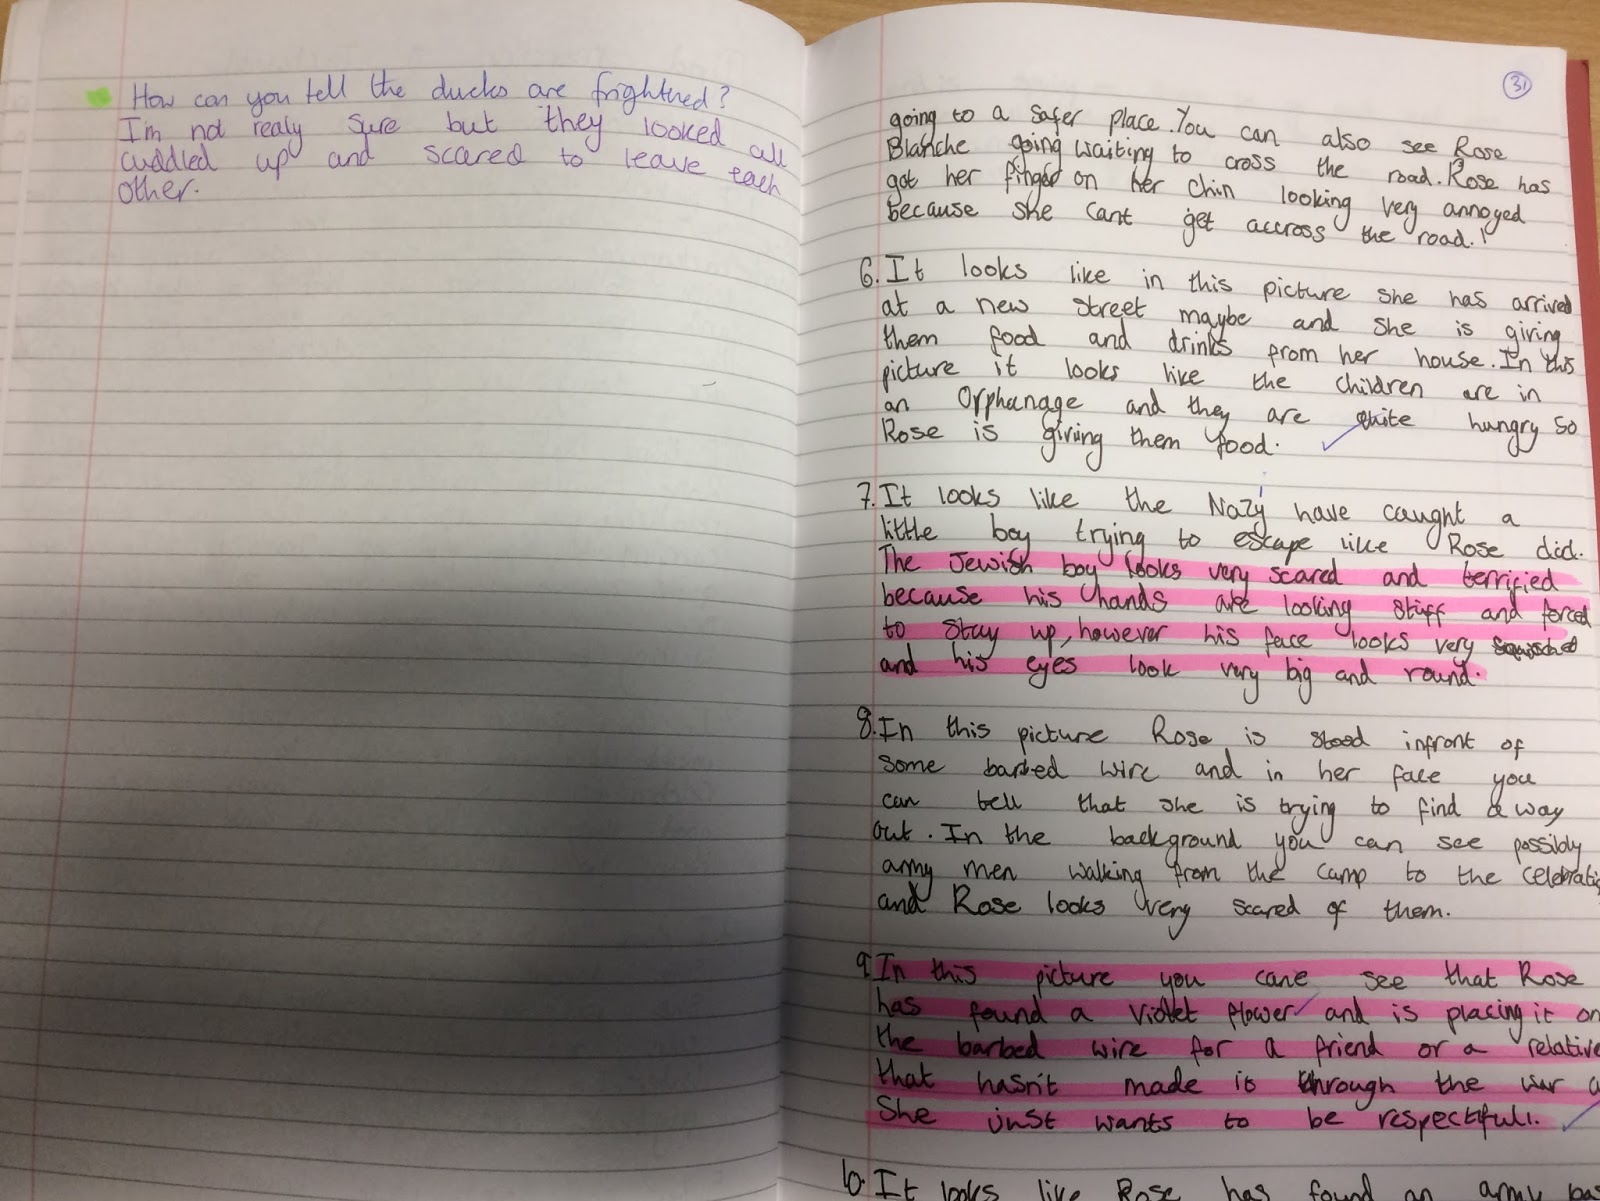 How can you tell the ducks are frightned?
I'm not realy sure but they looked all
cuddled up and scared to leave each
other.
31
going to a safer place. You can also see Rose
Blanche going waiting to cross the road. Rose has
got her finger on her chin looking very annoyed
because she cant get accross the road.!
6. It looks like in this picture she has arrived
at a new street maybe and she is giving
them food and drinks from her house. In this
picture it looks like the children are in
an Orphanage and they are quite hungry so
Rose is giving them food.
7. It looks like the Nazi have caught a
little boy trying to escape like Rose did.
The Jewish boy looks very scared and terrified
because his hands are looking stuff and forced
to stay up, however his face looks very squished
and his eyes look very big and round.
8. In this picture Rose is stood infront of
some barbed wire and in her face you
can tell that she is trying to find a way
out. In the background you can see possibly
army men walking from the camp to the celebrati
and Rose looks very scared of them.
9. In this picture you cane see that Rose
has found a violet flower and is placing it on
the barbed wire for a friend or a relative
that hasn't made it through the war a
She just wants to be respectfull.
10. It looks like Rose has found an army bas